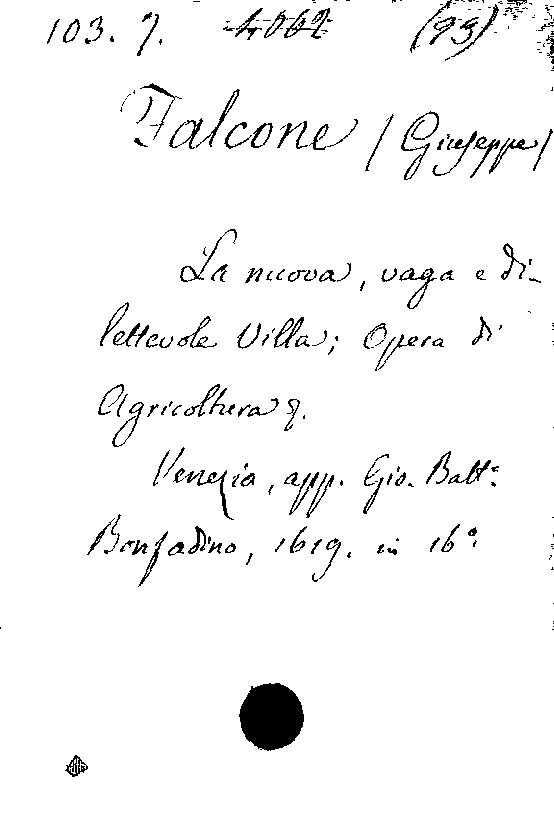 103. 7. 4062 (93)
Falcone / Giuseppe /
La nuova, vaga e di-
lettevole Villa; Opera di
Agricoltura &.
Venezia, app. Gio. Batt.ª
Bonfadino, 1619. in 16.º